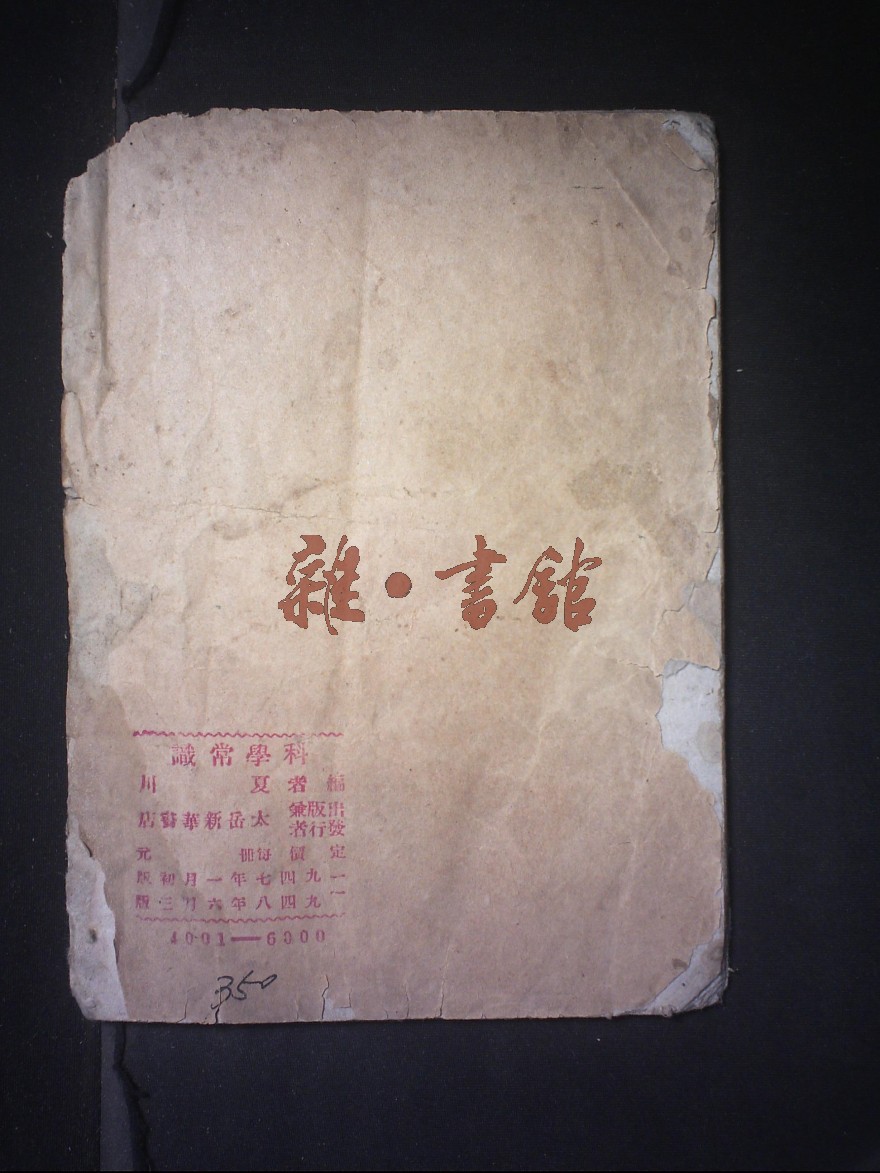 雜·書館
科學常識
編者 夏川
出版兼
發行者 太岳新華書店
定價 每冊 元
一九四七年一月初版
一九四八年六月三版
4001—6000
350